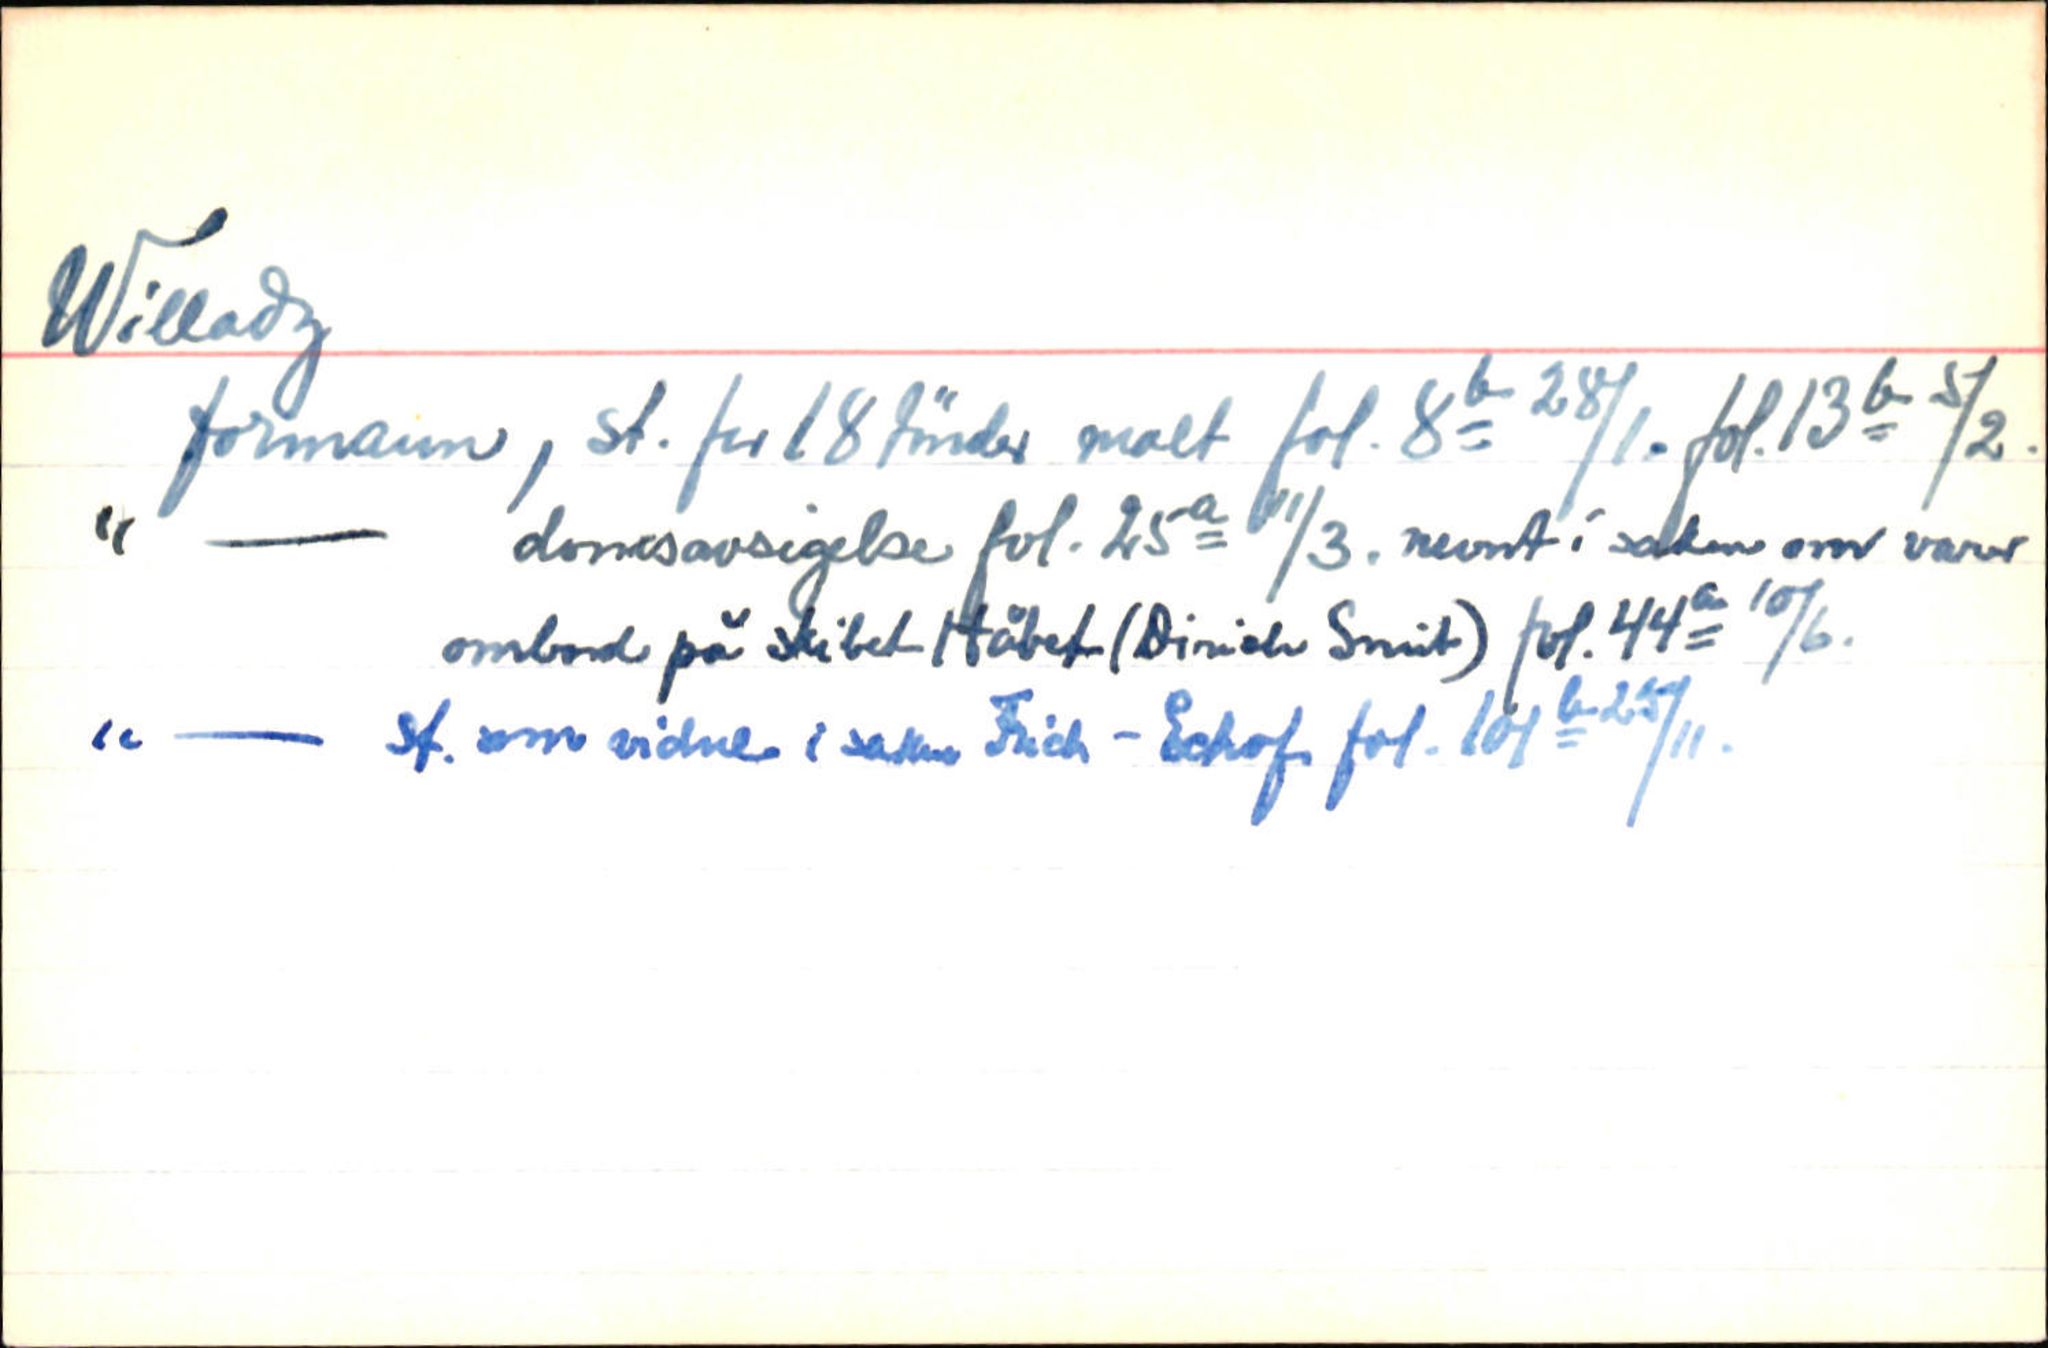 Willadz
formann, st. for 18 tünder malt fol. 8b 28/1. fol. 13b 5/2.
" — domsavsigelse fol. 25a 11/3. nevnt i saken om varer
ombord på skibet Håbet (Dirich Smit) fol. 44a 10/6.
" — st. som vidne i saken Frich - Echof fol. 101b 25/11.